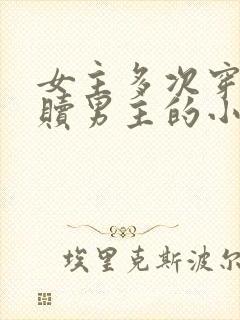 女主多次穿
赎男主的小
埃里克斯波尔